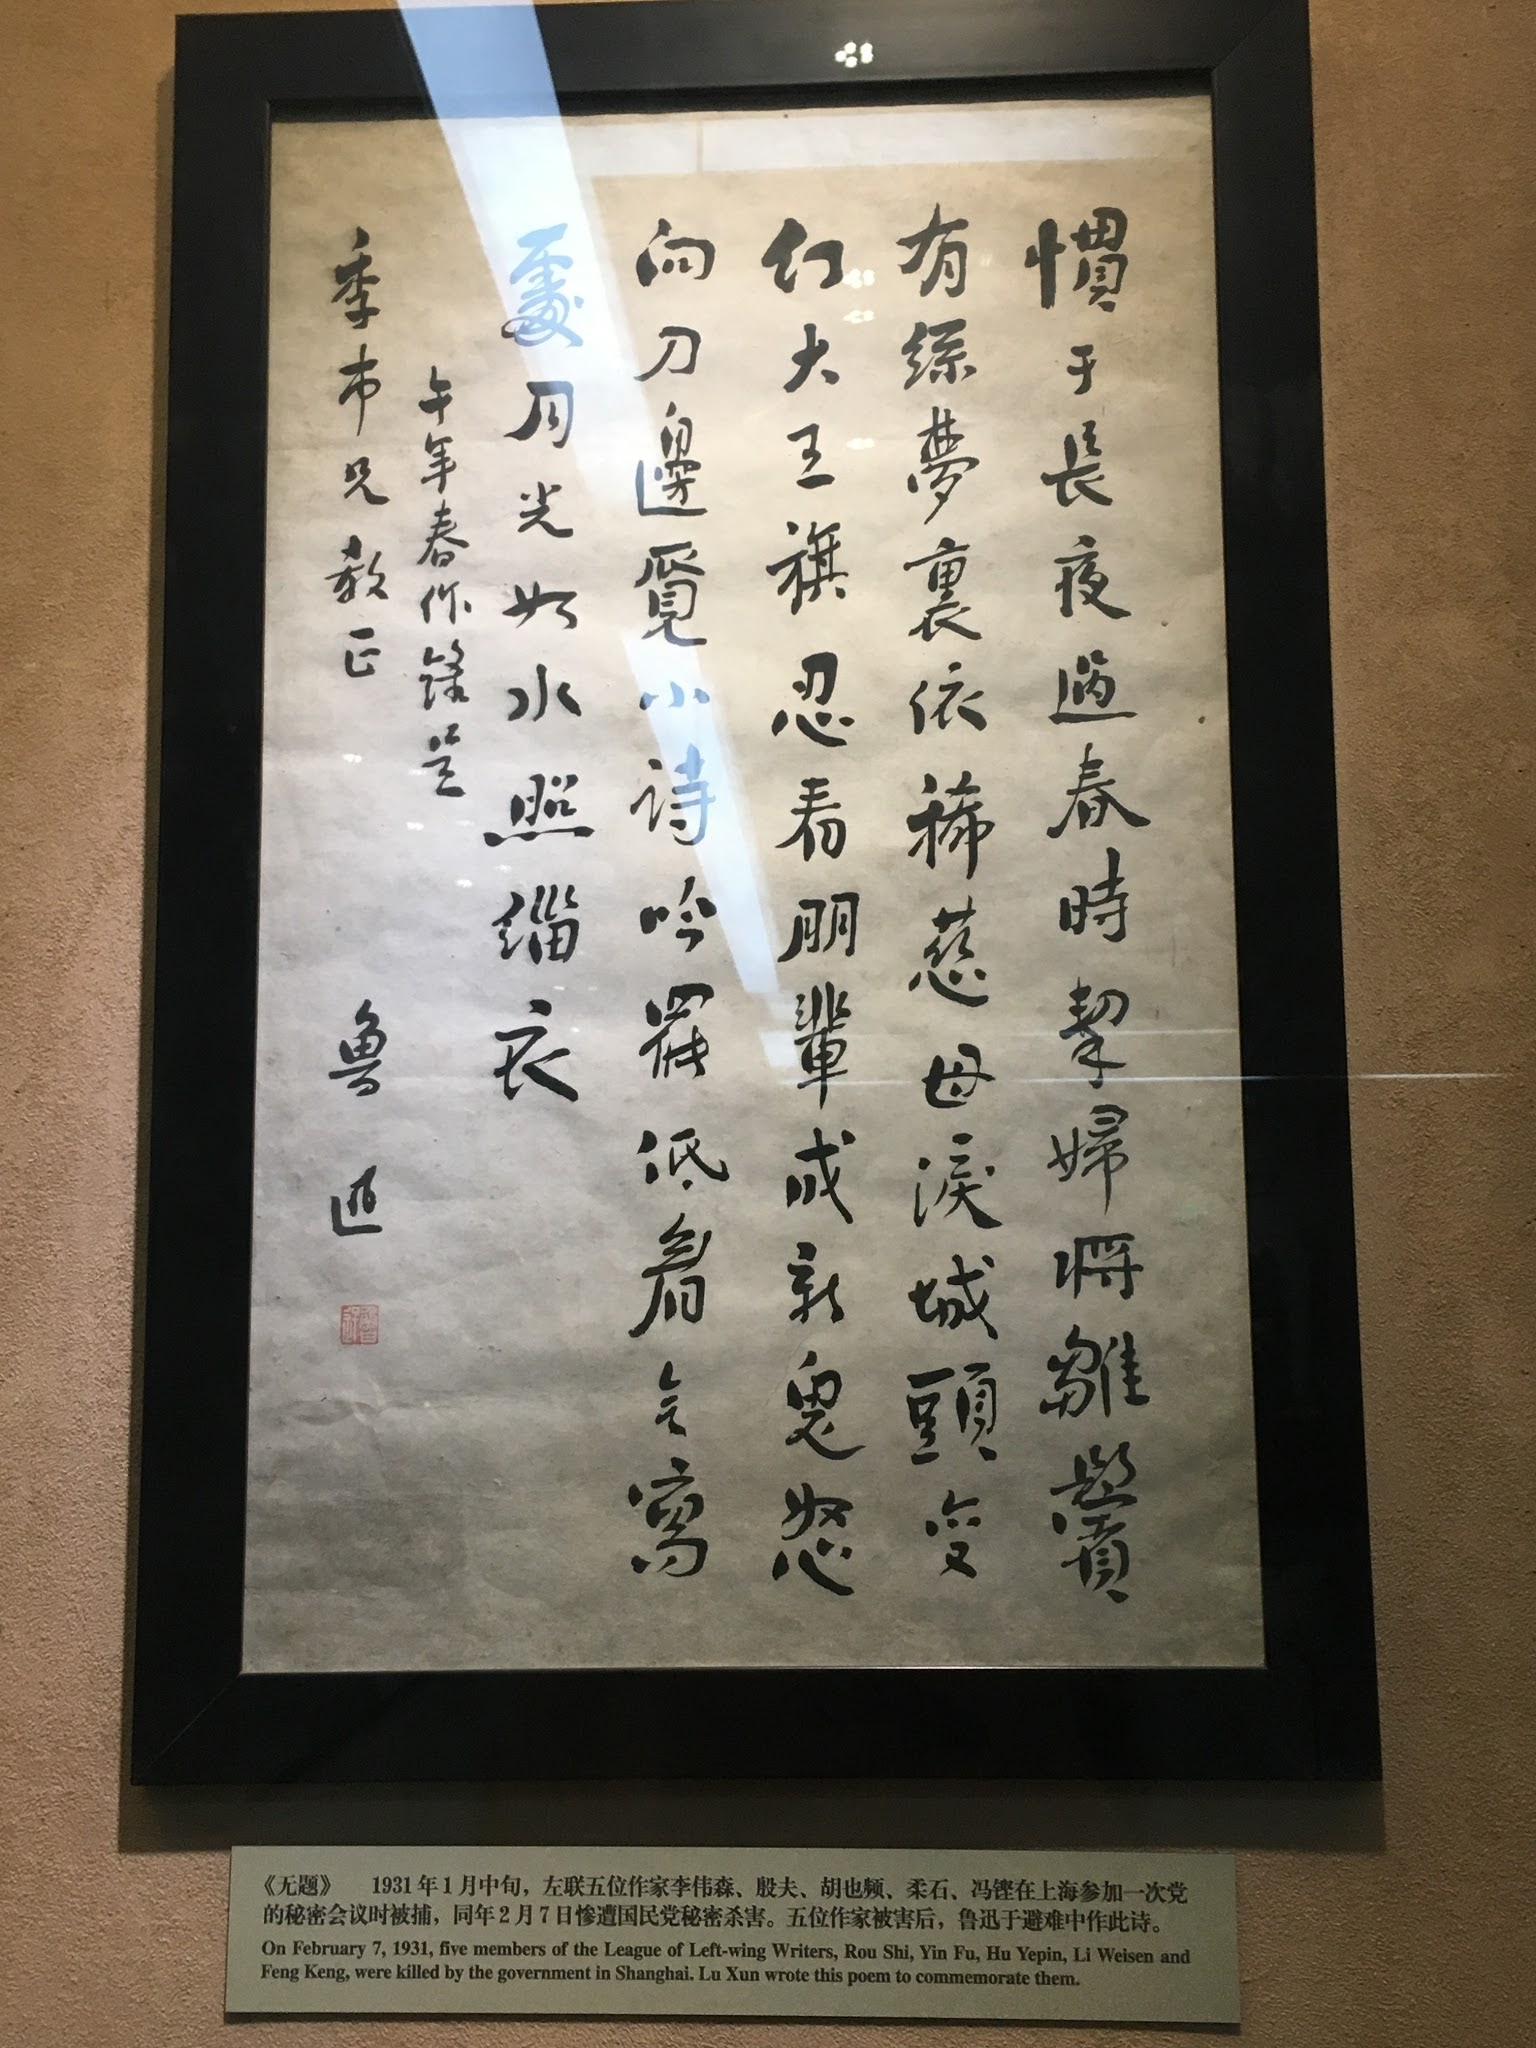 慣于長夜過春時挈婦將雛鬢
有絲夢裏依稀慈母淚城頭變
幻大王旗忍看朋輩成新鬼怒
向刀邊覓小詩吟罷低眉无寫
處月光如水照緇衣
午年春作錄呈
季巿兄教正 魯迅
《无题》 1931年1月中旬，左联五位作家李伟森、殷夫、胡也频、柔石、冯铿在上海参加一次党
的秘密会议时被捕，同年2月7日惨遭国民党秘密杀害。五位作家被害后，鲁迅于避难中作此诗。
On February 7, 1931, five members of the League of Left-wing Writers, Rou Shi, Yin Fu, Hu Yepin, Li Weisen and
Feng Keng, were killed by the government in Shanghai. Lu Xun wrote this poem to commemorate them.